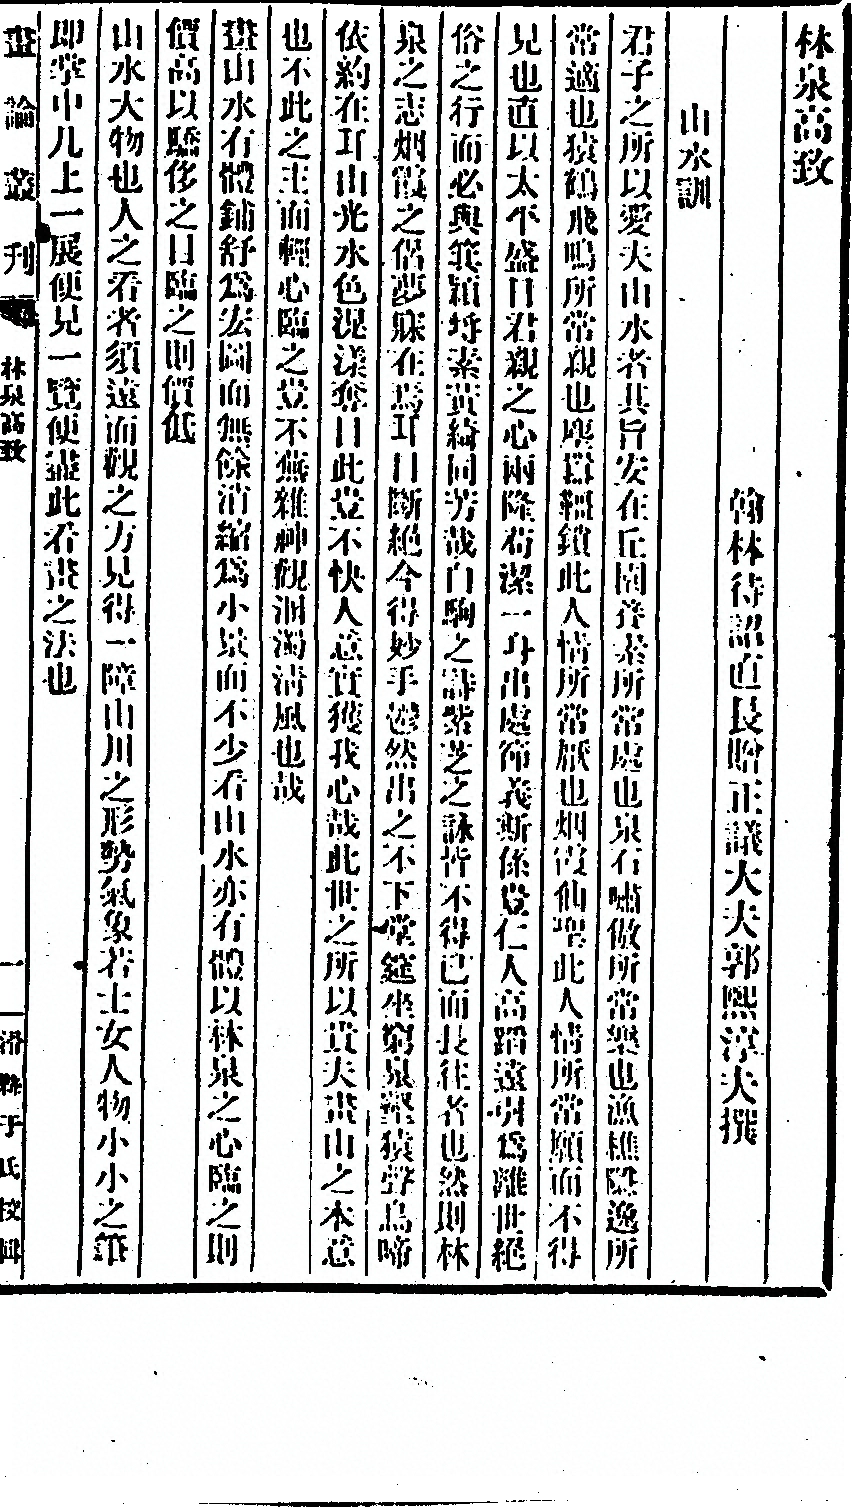 林泉高致
翰林待詔直長贈正議大夫郭熙淳夫撰
山水訓
君子之所以愛夫山水者其旨安在丘園養素所常處也泉石嘯傲所常樂也漁樵隱逸所
常適也猿鶴飛鳴所常親也塵囂韁鎖此人情所常厭也烟霞仙聖此人情所常願而不得
見也直以太平盛日君親之心兩隆苟潔一身出處節義斯係豈仁人高蹈遠引爲離世絕
俗之行而必與箕潁埒素黃綺同芳哉白駒之詩紫芝之詠皆不得已而長往者也然則林
泉之志烟霞之侶夢寐在焉耳目斷絕今得妙手鬱然出之不下堂筵坐窮泉壑猿聲鳥啼
依約在耳山光水色滉漾奪目此豈不快人意實獲我心哉此世之所以貴夫畫山之本意
也不此之主而輕心臨之豈不蕪雜神觀溷濁清風也哉
畫山水有體鋪舒爲宏圖而無餘消縮爲小景而不少看山水亦有體以林泉之心臨之則
價高以驕侈之目臨之則價低
山水大物也人之看者須遠而觀之方見得一障山川之形勢氣象若士女人物小小之筆
即掌中几上一展便見一覽便盡此看畫之法也
畫論叢刊
林泉高致
一
于氏校輯